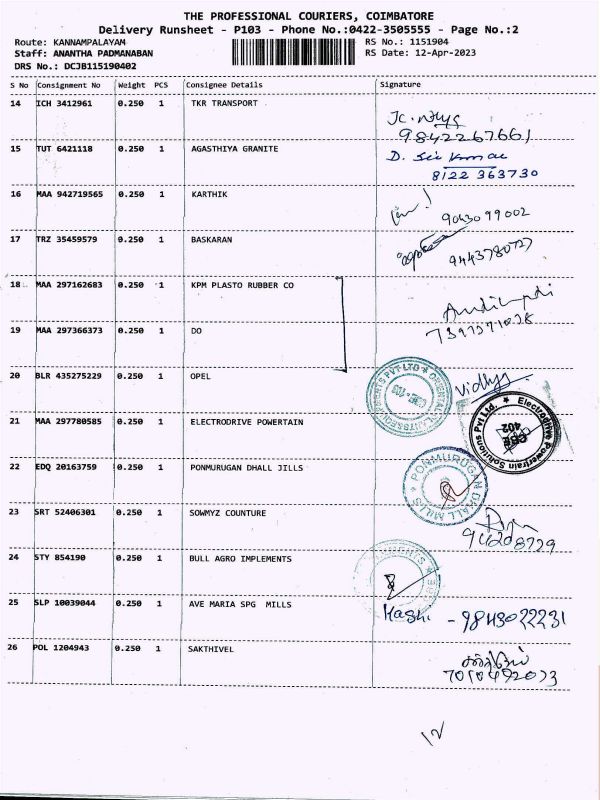 THE PROFESSIONAL COURIERS, COIMBATORE
Delivery Runsheet - P103 - Phone No.:0422-3505555 - Page No.:2
Route: KANNAMPALAYAM RS No.: 1151904
Staff: ANANTHA PADMANABAN RS Date: 12-Apr-2023
DRS No.: DCJB115190402
S No Consignment No Weight PCS Consignee Details Signature
14 ICH 3412961 0.250 1 TKR TRANSPORT
9842267661
15 TUT 6421118 0.250 1 AGASTHIYA GRANITE
8122 363730
16 MAA 942719565 0.250 1 KARTHIK
9043099002
17 TRZ 35459579 0.250 1 BASKARAN
18 MAA 297162683 0.250 1 KPM PLASTO RUBBER CO
19 MAA 297366373 0.250 1 DO
20 BLR 435275229 0.250 1 OPEL Vidhya
21 MAA 297780585 0.250 1 ELECTRODRIVE POWERTAIN
Electrodrive Powertrain Solutions Pvt Ltd. CBE 402
22 EDQ 20163759 0.250 1 PONMURUGAN DHALL JILLS
PONMURUGAN DHALL MILLS
23 SRT 52406301 0.250 1 SOWMYZ COUNTURE
24 STY 854190 0.250 1 BULL AGRO IMPLEMENTS
25 SLP 10039044 0.250 1 AVE MARIA SPG MILLS
- 9843022231
26 POL 1204943 0.250 1 SAKTHIVEL
12